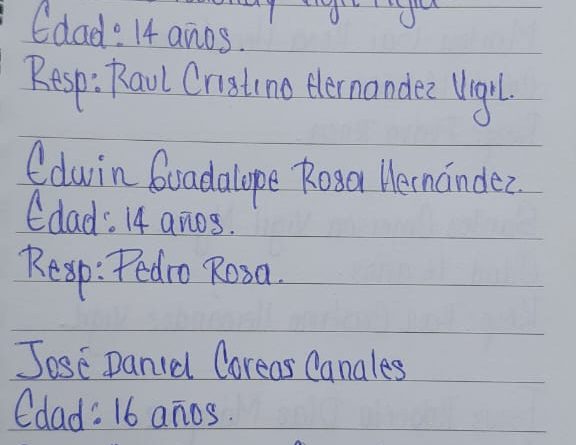 Edad: 14 años.
Resp: Raul Cristino Hernandez Vigil.
Edwin Guadalupe Rosa Hernández.
Edad: 14 años.
Resp: Pedro Rosa.
José Daniel Coreas Canales
Edad: 16 años.